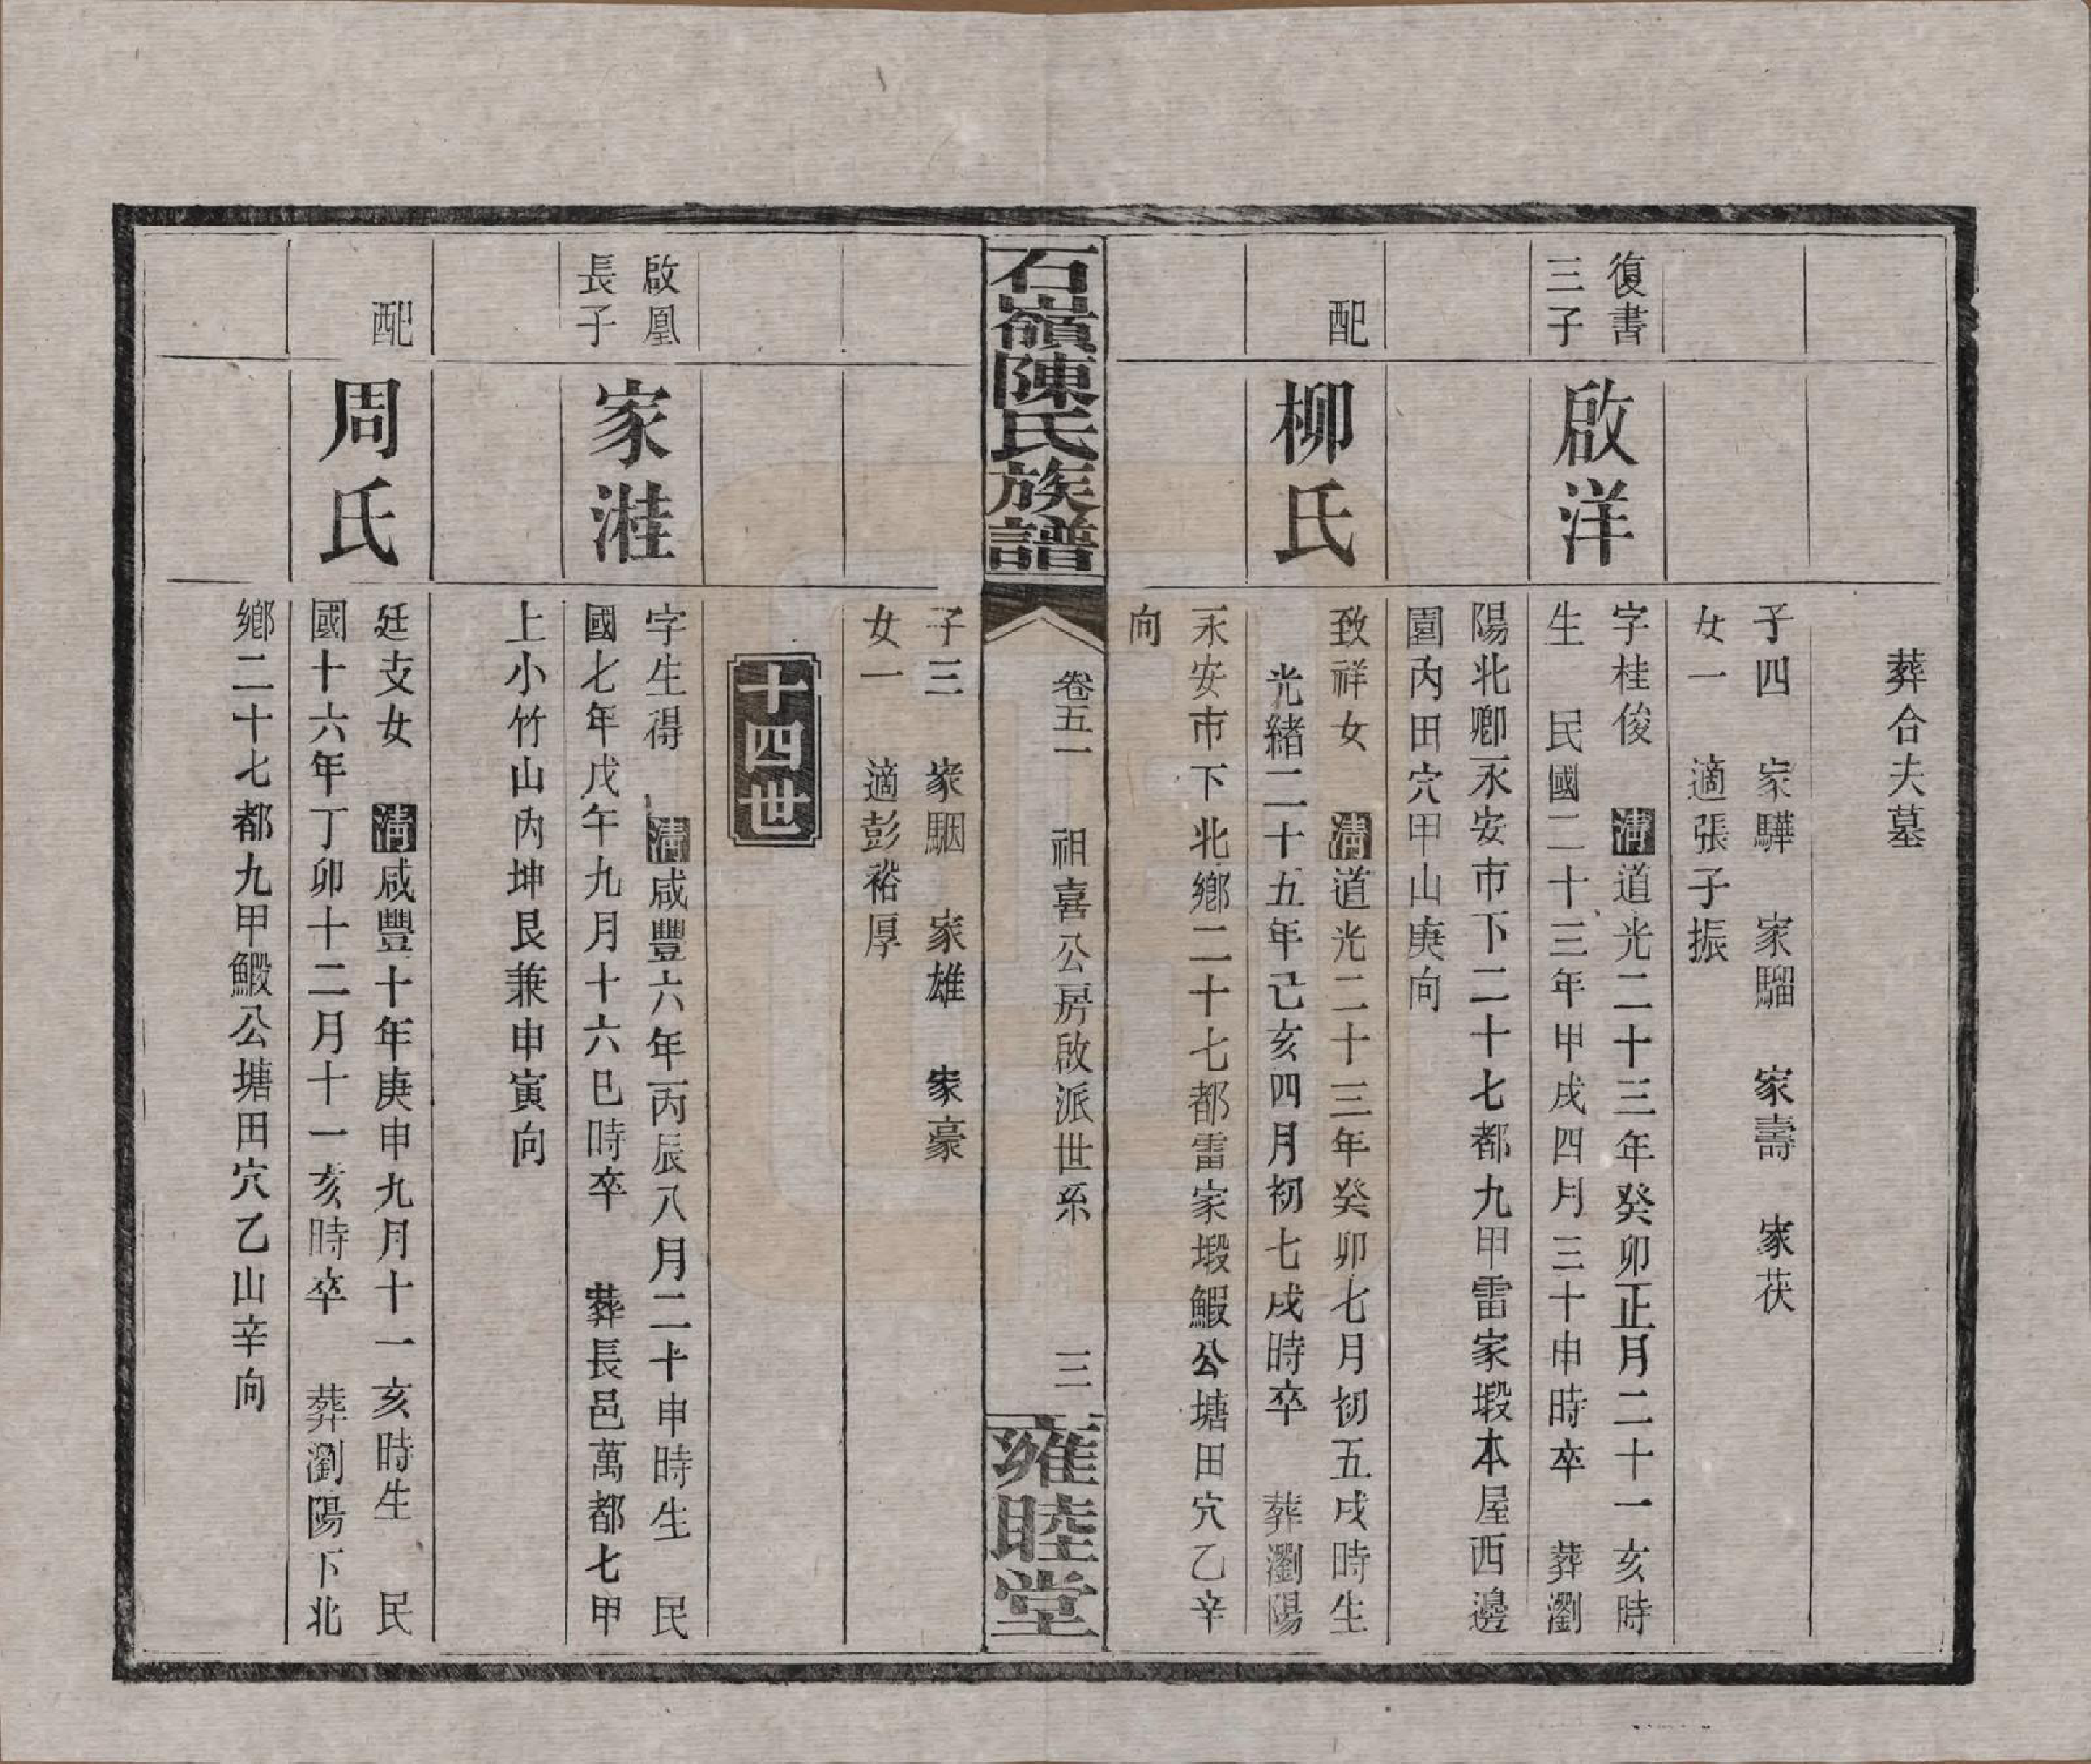 葬合夫墓
子四　家驊　家騮　家壽　家茯
女一　適張子振
復書
三子
啟洋
字桂俊　清道光二十三年癸卯正月二十一亥時
生　民國二十三年甲戌四月三十申時卒　葬瀏
陽北鄉永安市下二十七都九甲雷家塅本屋西邊
園內田穴甲山庚向
配
柳氏
致祥女　清道光二十三年癸卯七月初五戌時生
光緒二十五年己亥四月初七戌時卒　葬瀏陽
永安市下北鄉二十七都雷家塅鰕公塘田穴乙辛
向
石嶺陳氏族譜
卷五一　祖喜公房啟派世系　三
雍睦堂
子三　家駰　家雄　家豪
女一　適彭裕厚
十四世
啟凰
長子
家溎
字生得　清咸豐六年丙辰八月二十申時生　民
國七年戊午九月十六巳時卒　葬長邑萬都七甲
上小竹山內坤艮兼申寅向
配
周氏
廷支女　清咸豐十年庚申九月十一亥時生　民
國十六年丁卯十二月十一亥時卒　葬瀏陽下北
鄉二十七都九甲鰕公塘田穴乙山辛向